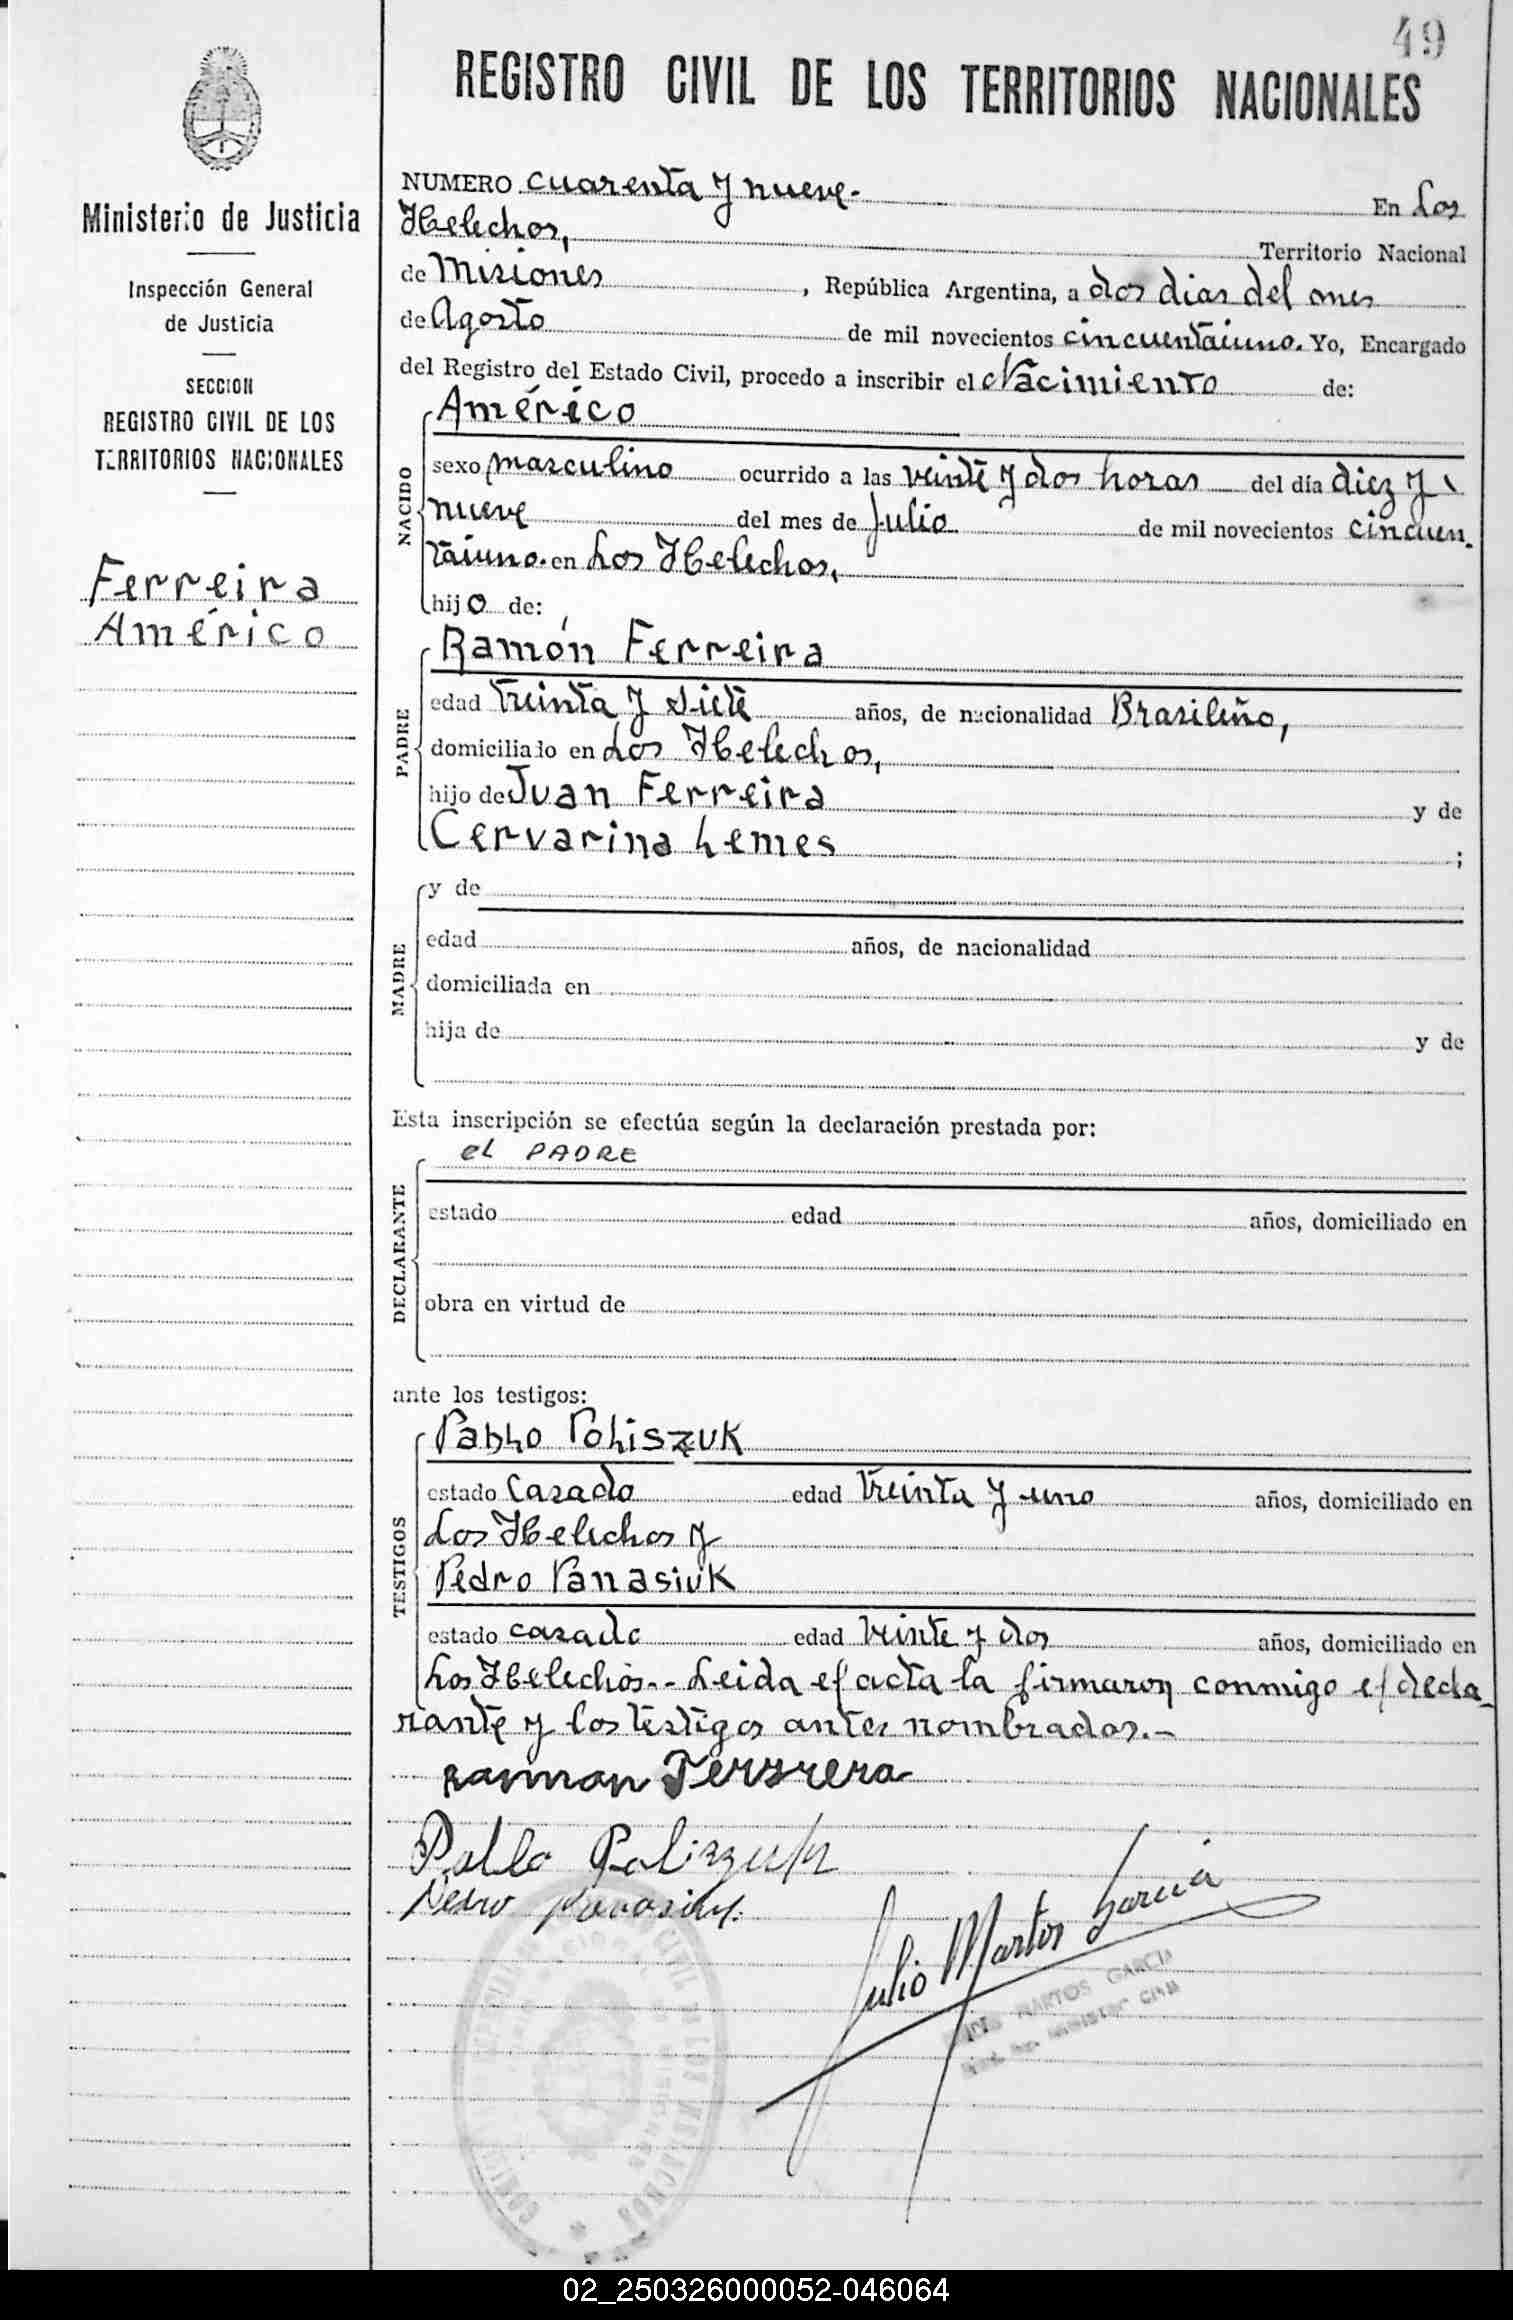 49
REGISTRO CIVIL DE LOS TERRITORIOS NACIONALES
Ministerio de Justicia
Inspección General
de Justicia
SECCION
REGISTRO CIVIL DE LOS
TERRITORIOS NACIONALES
Ferreira
Américo
NUMERO cuarenta y nueve.- En Los
Helechos, Territorio Nacional
de Misiones, República Argentina, a dos dias del mes
de Agosto de mil novecientos cincuentaiuno. Yo, Encargado
del Registro del Estado Civil, procedo a inscribir el Nacimiento de:
NACIDO
Américo
sexo masculino ocurrido a las veinte y dos horas del día diez y
nueve del mes de Julio de mil novecientos cincuen-
taiuno. en Los Helechos,
hijo de:
PADRE
Ramón Ferreira
edad treinta y siete años, de nacionalidad Brasileño,
domiciliado en Los Helechos,
hijo de Juan Ferreira y de
Cervarina Lemes ;
MADRE
y de
edad años, de nacionalidad
domiciliada en
hija de y de
Esta inscripción se efectúa según la declaración prestada por:
DECLARANTE
el PADRE
estado edad años, domiciliado en
obra en virtud de
ante los testigos:
TESTIGOS
Pablo Poliszuk
estado casado edad treinta y uno años, domiciliado en
Los Helechos y
Pedro Panasiuk
estado casado edad veinte y dos años, domiciliado en
Los Helechos.- Leida el acta la firmaron conmigo el decla-
rante y los testigos antes nombrados.-
Ramman Ferrera
Pablo Poliszuk
Pedro Panasiuk
Julio Martos Garcia
MARTOS GARCIA
02_250326000052-046064